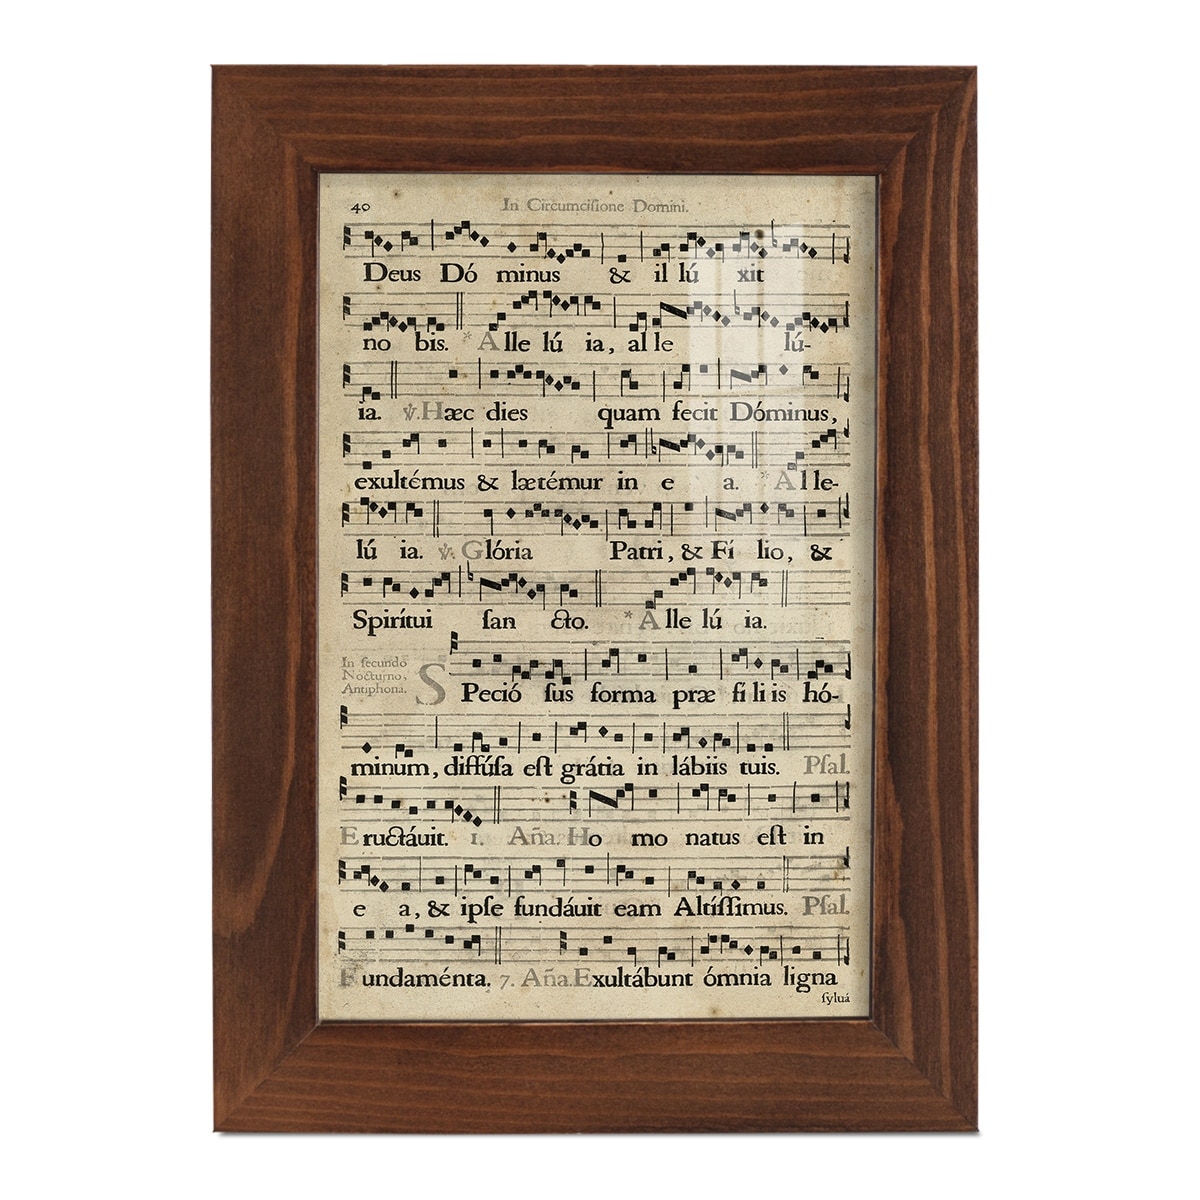 40 In Circumciſione Domini.
Deus Dó minus & il lú xit
no bis. * Alle lú ia, al le lú-
ia. ℣. Hæc dies quam fecit Dóminus,
exultémus & lætémur in e a. * Alle-
lú ia. ℣. Glória Patri, & Fí lio, &
Spirítui ſan cto. * Alle lú ia.
In ſecundo
Nocturno,
Antiphona.
SPeció ſus forma præ fí li is hó-
minum, diffúſa eſt grátia in lábiis tuis. Pſal.
Eructáuit. 1. Aña. Ho mo natus eſt in
e a, & ipſe fundáuit eam Altíſſimus. Pſal.
Fundaménta. 7. Aña. Exultábunt ómnia ligna
ſyluá